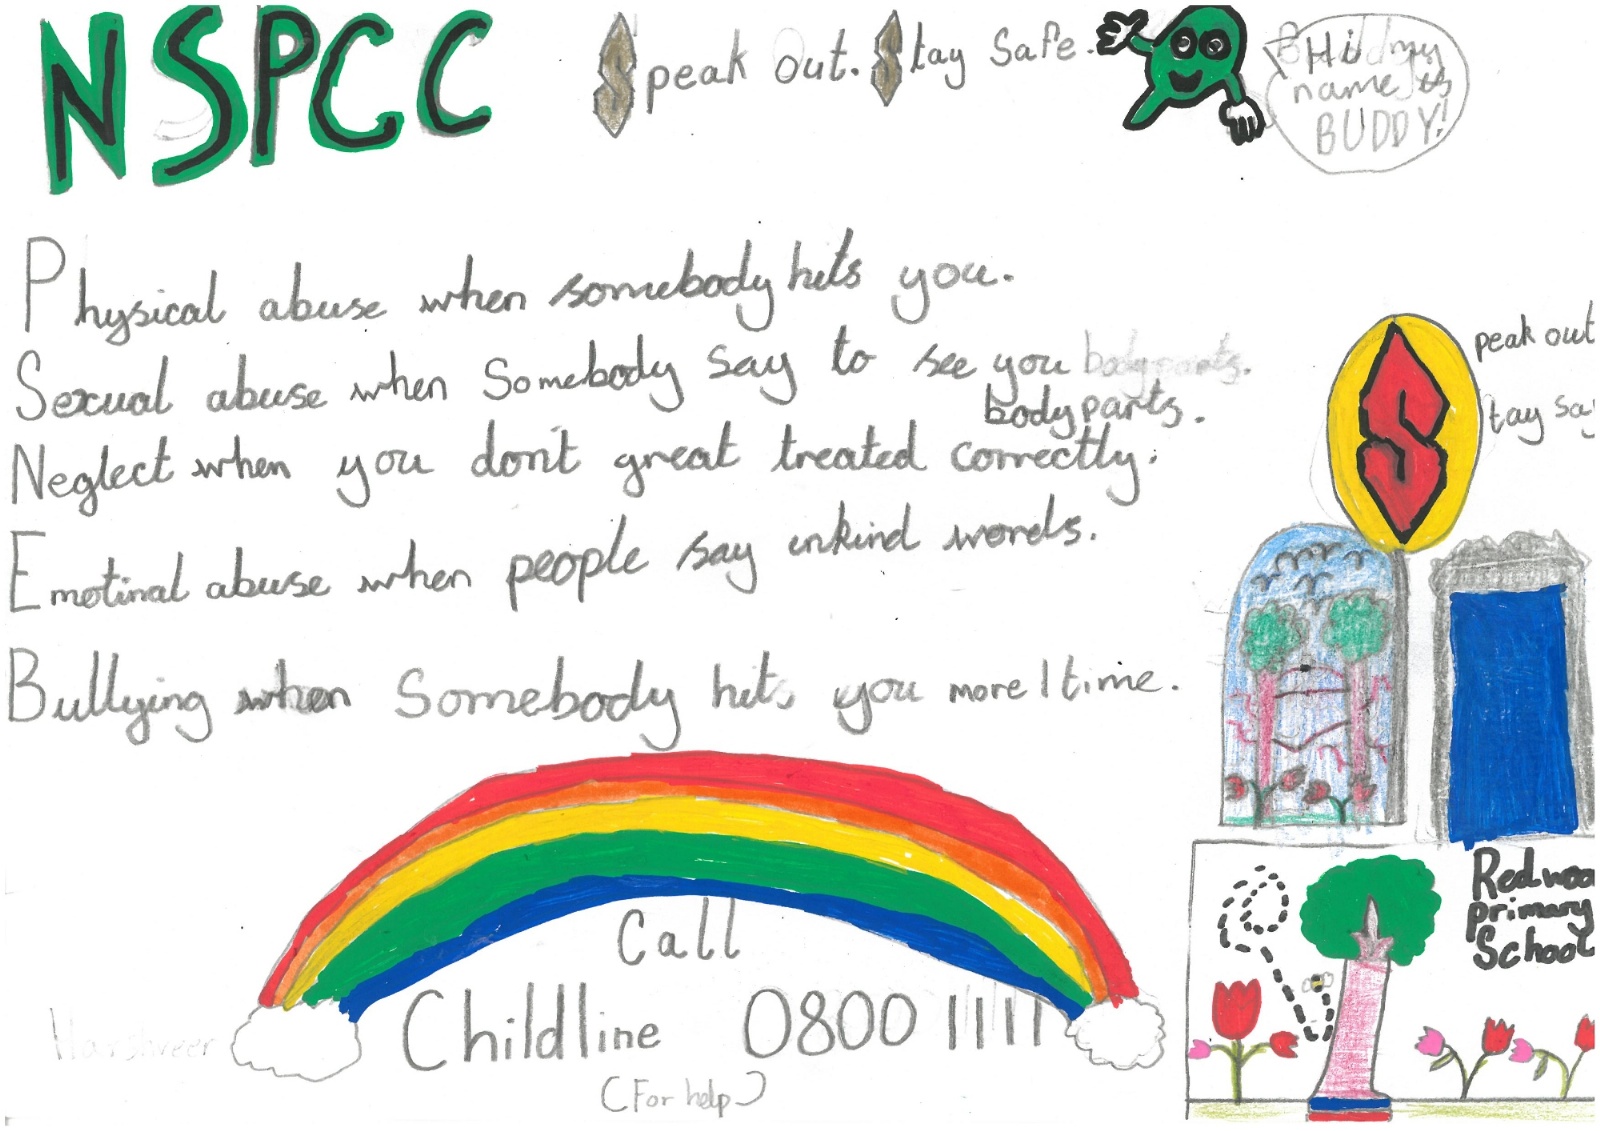 NSPCC
Speak Out. Stay Safe.
Hi my
name is
BUDDY!
Physical abuse when somebody hits you.
Sexual abuse when Somebody say to see you body parts.
body parts.
Neglect when you don't great treated correctly.
Emotinal abuse when people say unkind words.
Bullying when Somebody hits you more 1 time.
Speak out
Stay Sa
Call
Childline 0800 1111
(For help)
Harshveer
Redwoo
primary
School